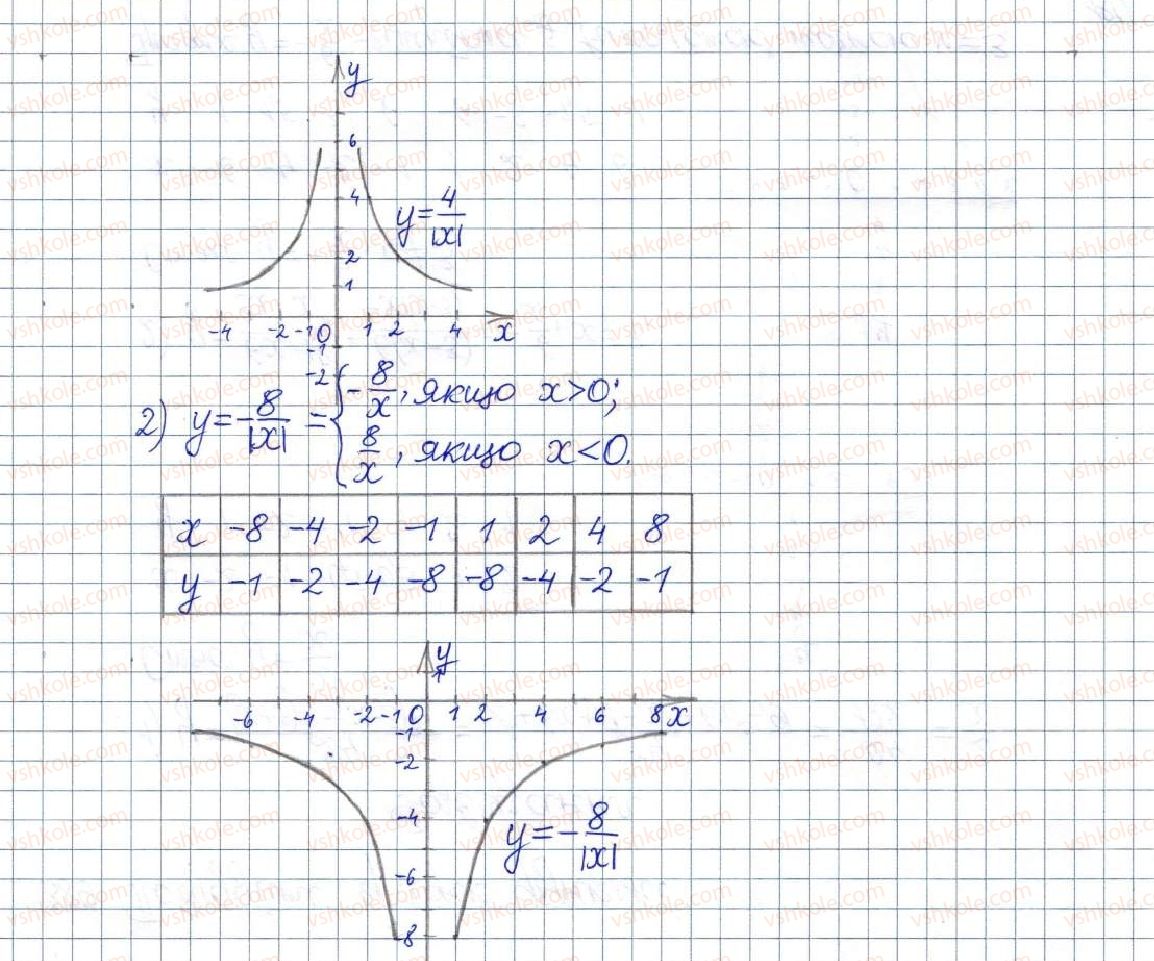 y
6
4
y = 4/|x|
2
1
-4 -2 -1 0 1 2 4 x
-1
-2
2) y = -8/|x| = { -8/x, якщо x>0;
8/x, якщо x<0.
x -8 -4 -2 -1 1 2 4 8
y -1 -2 -4 -8 -8 -4 -2 -1
y
1
-6 -4 -2 -1 0 1 2 4 6 8 x
-1
-2
-4
y = -8/|x|
-6
-8
vshkole.com